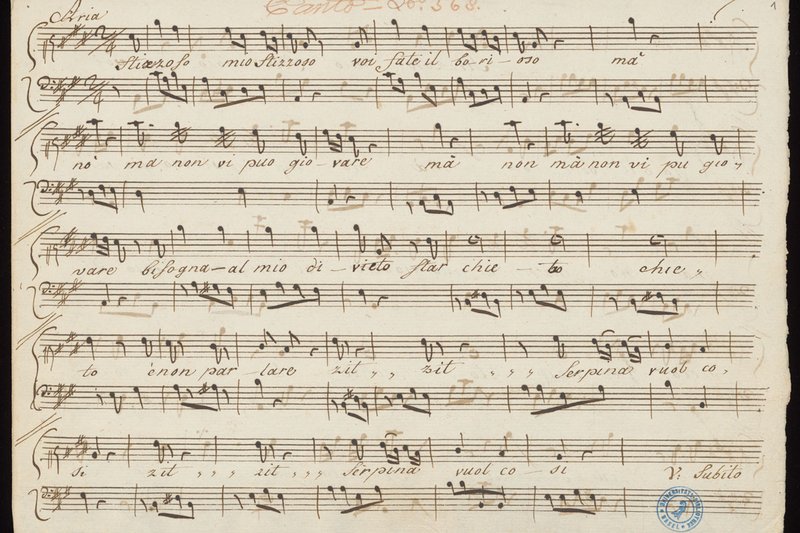 Canto – No. 368.
1
Aria
Stizzoso mio Stizzoso voi fate il bo-ri-oso mà
nò ma non vi puo gio-vare mà non mà non vi pu gio,
vare bisogna-al mio di-vieto star chie-to chie,
to è non par-lare zit,, zit,,,, Serpina vuol co,
si zit,,, zit,,, Serpina vuol co-si V: Subito
UNIVERSITÄTSBIBLIOTHEK BASEL